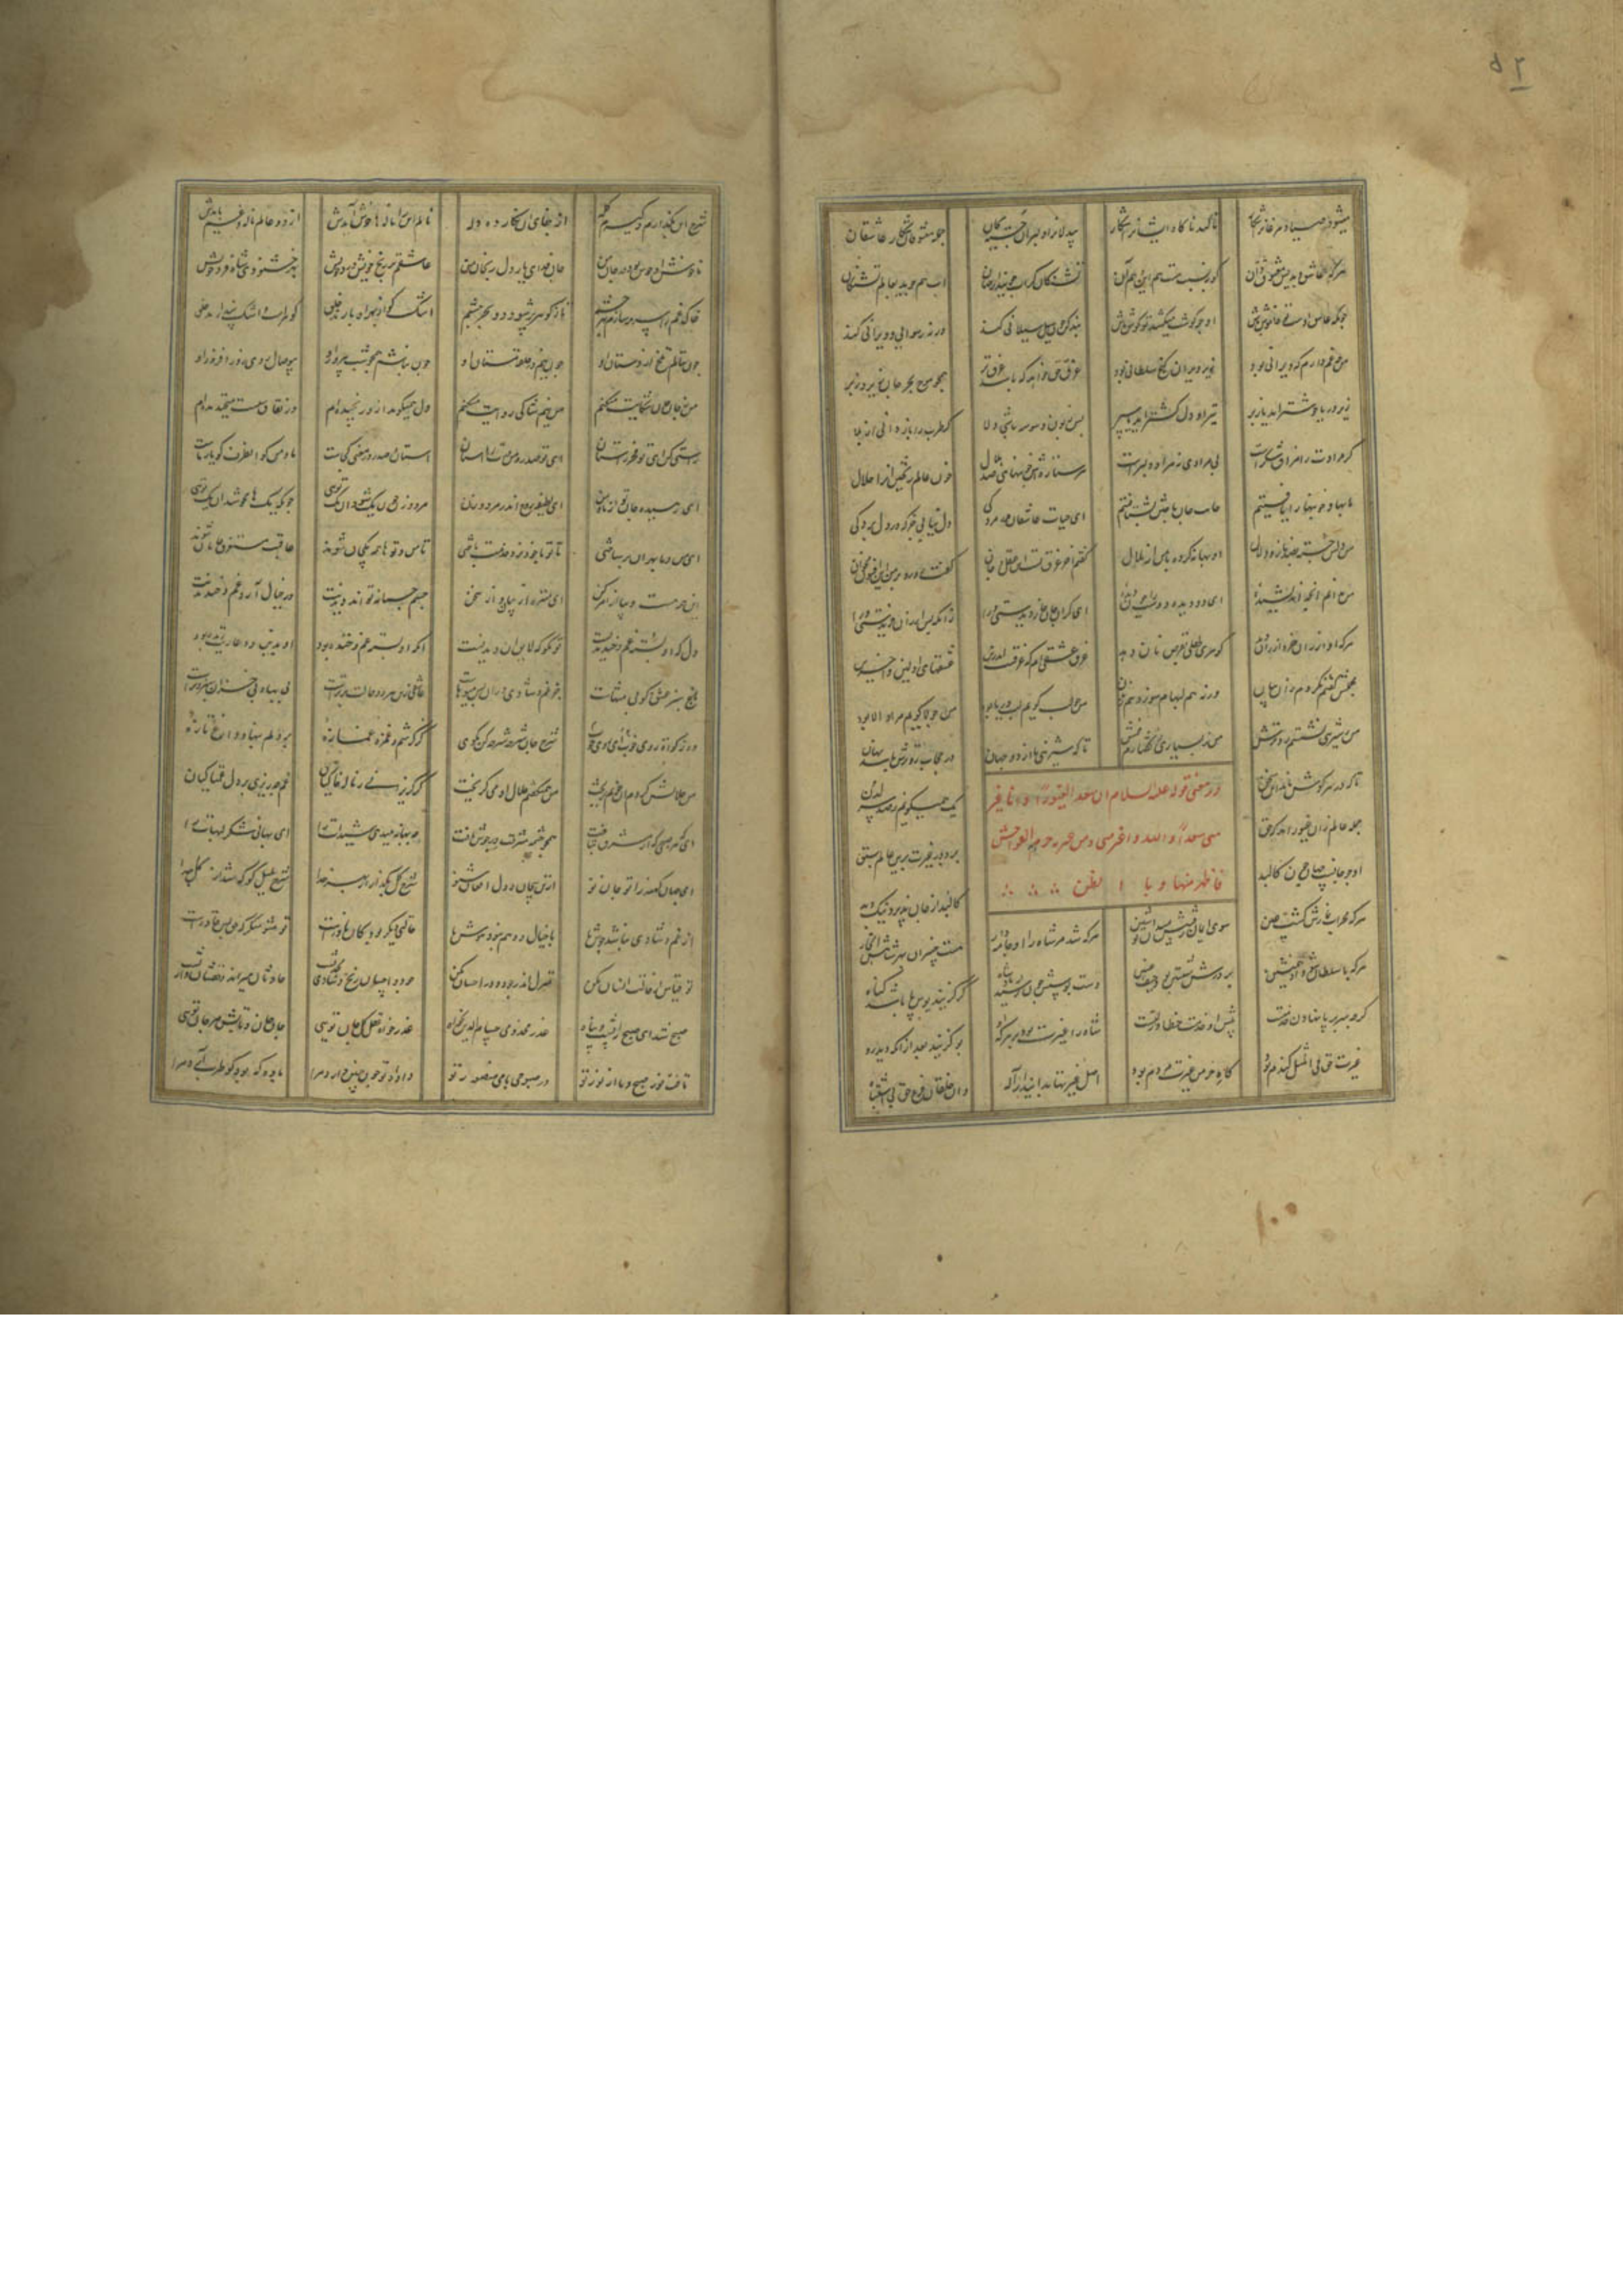 ۵۲
میشود صیاد مرغانرا شکار تا کند ناکاه ایشانرا شکار بیدلانرا دلبران جسته بجان جمله معشوقان شکار عاشقان
هرکه عاشق دیدیش معشوق دان کو بنسبت هست هم این و هم آن تشنکان کر آب جویند از جهان آب هم جوید بعالم تشنکان
چونکه عاشق اوست تو خاموش باش او چو کوشت میکشد تو کوش باش بند کن چون سیل سیلانی کند ورنه رسوایی و ویرانی کند
من چه غم دارم که ویرانی بود زیر ویران کنج سلطانی بود غرق حق خواهد که باشد غرق تر همچو موج بحر جان زیر و زبر
زیر دریا خوشتر آید یا زبر تیر او دلکشتر آید یا سپر پس زبون وسوسه باشی دلا کر طرب را باز دانی از بلا
کر مرادت را مذاق شکرست بی مرادی نی مراد دلبرست هر ستاره‌ش خونبهای صد هلال خون عالم ریختن او را حلال
ما بها و خونبها را یافتیم جانب جان باختن بشتافتیم ای حیات عاشقان در مردکی دل نیابی جز که در دل بردکی
من دلش جسته بصد ناز و دلال او بهانه کرده با من از ملال کفتم آخر غرق تست این عقل و جان کفت رو رو بر من این افسون مخوان
من ندانم آنچه اندیشیدهٔ ای دو دیده دوست را چون دیدهٔ ای کران جان خوار دیدستی ورا زانکه بس ارزان خریدستی ورا
هرکه او ارزان خرد ارزان دهد کوهری طفلی بقرص نان دهد غرق عشقی‌ام که غرقست اندرین عشقهای اولین و آخرین
مجملش کفتم نکردم زان بیان ورنه هم افهام سوزد هم زبان من چو لب کویم لب دریا بود من چو لا کویم مراد الا بود
من ز شیرینی نشستم رو ترش من ز بسیاری کفتارم خمش تا که شیرینی ما از دو جهان در حجاب رو ترش باشد نهان
تا که در هر کوش ناید این سخن یک همی کویم ز صد سر لدن
در معنی قوله علیه السلام ان سعد الغیور و انا اغیر
من سعد و الله اغیر منی و من غیرته حرم الفواحش
ما ظهر منها و ما بطن
جمله عالم زان غیور آمد که حق برد در غیرت برین عالم سبق
او چو جانست و جهان چون کالبد کالبد از جان پذیرد نیک و بد
هرکه محراب نمازش کشت عین سوی ایمان رفتنش میدان تو شین هرکه شد مر شاه را او جامه دار هست خسران بهر شاهش اتجار
هرکه با سلطان شود او همنشین بر درش شستن بود حیف و غبین دست بوسش چون رسید از پادشاه کر کزیند بوس پا باشد کناه
کرچه سر بر پا نهادن خدمتست پیش آن خدمت خطا و زلتست شاه را غیرت بود بر هرکه او بو کزیند بعد از آنکه دید رو
غیرت حق بر مثل کندم بود کاه خرمن غیرت مردم بود اصل غیرتها بدانید از اله وان خلقان فرع حق بی اشتباه
۱۰۰
شرح این بکذارم و کیرم کله از جفای آن نکار ده دله نالم ایرا نالها خوش آیدش از دو عالم ناله و غم بایدش
ناخوش او خوش بود در جان من جان فدای یار دل رنجان من عاشقم بر رنج خویش و درد خویش بهر خشنودی شاه فرد خویش
خاک غم را سرمه سازم بهر چشم تا ز کوهر پر شود دو بحر چشم اشک کان از بهر او بارند خلق کوهرست و اشک پندارند خلق
چون بنالم تلخ از دستان او چون نیم در حلقه مستان او چون نباشم همچو شب بی روز او بی وصال روی روز افروز او
من ز جان جان شکایت میکنم من نیم شاکی روایت میکنم دل همی کوید ازو رنجیده‌ام وز نفاق سست میخندیده‌ام
راستی کن ای تو فخر راستان ای تو صدر و من درت را آستان آستان و صدر در معنی کجاست ما و من کو آن طرف کان یار ماست
ای رهیده جان تو از ما و من ای لطیفه روح اندر مرد و زن مرد و زن چون یک شود آن یک توی چونکه یکها محو شد آنک توی
تا تو با خود نرد خدمت باختی تا من و توها همه یک جان شوند عاقبت مستغرق جانان شوند
این همه هست و بیا ای امر کن ای منزه از بیا و از سخن جسم جسمانه تواند دیدنت در خیال آرد غم و خندیدنت
دل که او بسته غم و خندیدنست تو مکو کو لایق آن دیدنست آنکه او بسته غم و خنده بود او بدین دو عاریت زنده بود
باغ سبز عشق کو بی منتهاست جز غم و شادی درو بس میوه‌هاست عاشقی زین هر دو حالت برترست بی بهار و بی خزان سبز و ترست
ده زکات روی خوب ای خوب رو شرح جان شرحه شرحه باز کو کز کرشم غمزه غمازهٔ بر دلم بنهاد داغی تازهٔ
من حلالش کردم ار خونم بریخت من همی کفتم حلال او می کریخت چون کریزانی ز ناله خاکیان غم چه ریزی بر دل غمناکیان
ای که هر صبحی که از مشرق بتافت همچو چشمه مشرقت در جوش یافت چه بهانه میدهی شیدات را ای بهانه شکر لبهات را
ای جهان کهنه را تو جان نو از تن بی جان و دل افغان شنو شرح کل بکذار از بهر خدا شرح بلبل کو که شد از کل جدا
از غم و شادی نباشد جوش ما با خیال و وهم نبود هوش ما حالتی دیکر بود کان نادرست تو مشو منکر که حق بس قادرست
تو قیاس از حالت انسان مکن منزل اندر جور و در احسان مکن جور و احسان رنج و شادی حادثست حادثان میرند و حقشان وارثست
صبح شد ای صبح را پشت و پناه عذر مخدومی حسام الدین بخواه عذرخواه عقل کل و جان توی جان جان و تابش مرجان توی
تافت نور صبح و ما از نور تو در صبوحی با می منصور تو دادهٔ تو چون چنین دارد مرا باده که بود کو طرب آرد مرا